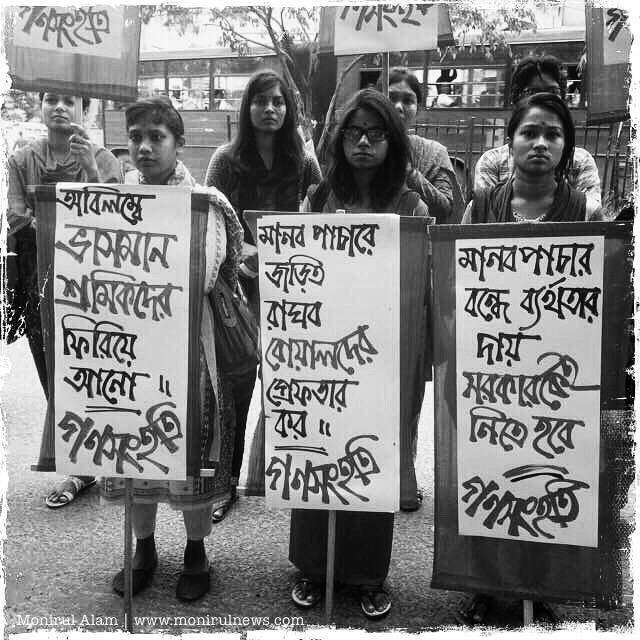 গণসংহতি
গণসংহতি
অবিলম্বে
ভাসমান
শ্রমিকদের
ফিরিয়ে
আনো ॥
গণসংহতি
মানব পাচারে
জড়িত
রাঘব
বোয়ালদের
গ্রেফতার
কর ॥
গণসংহতি
মানব পাচার
বন্ধে ব্যর্থতার
দায়
সরকারকেই
নিতে হবে
গণসংহতি
Monirul Alam | www.monirulnews.com